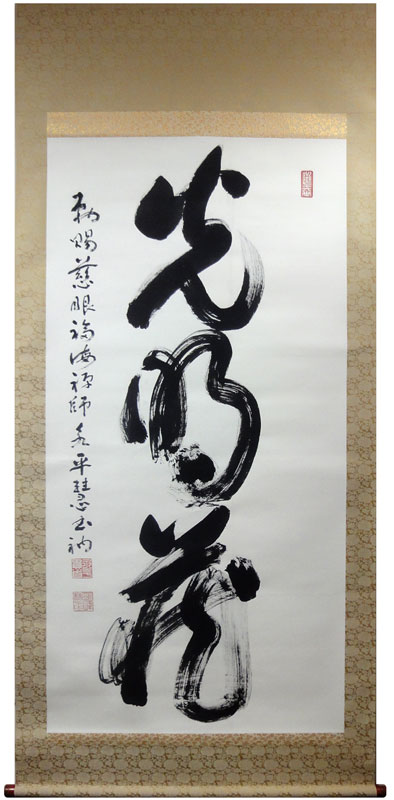 光明蔵
勅賜慈眼福海禅師永平慧玉衲